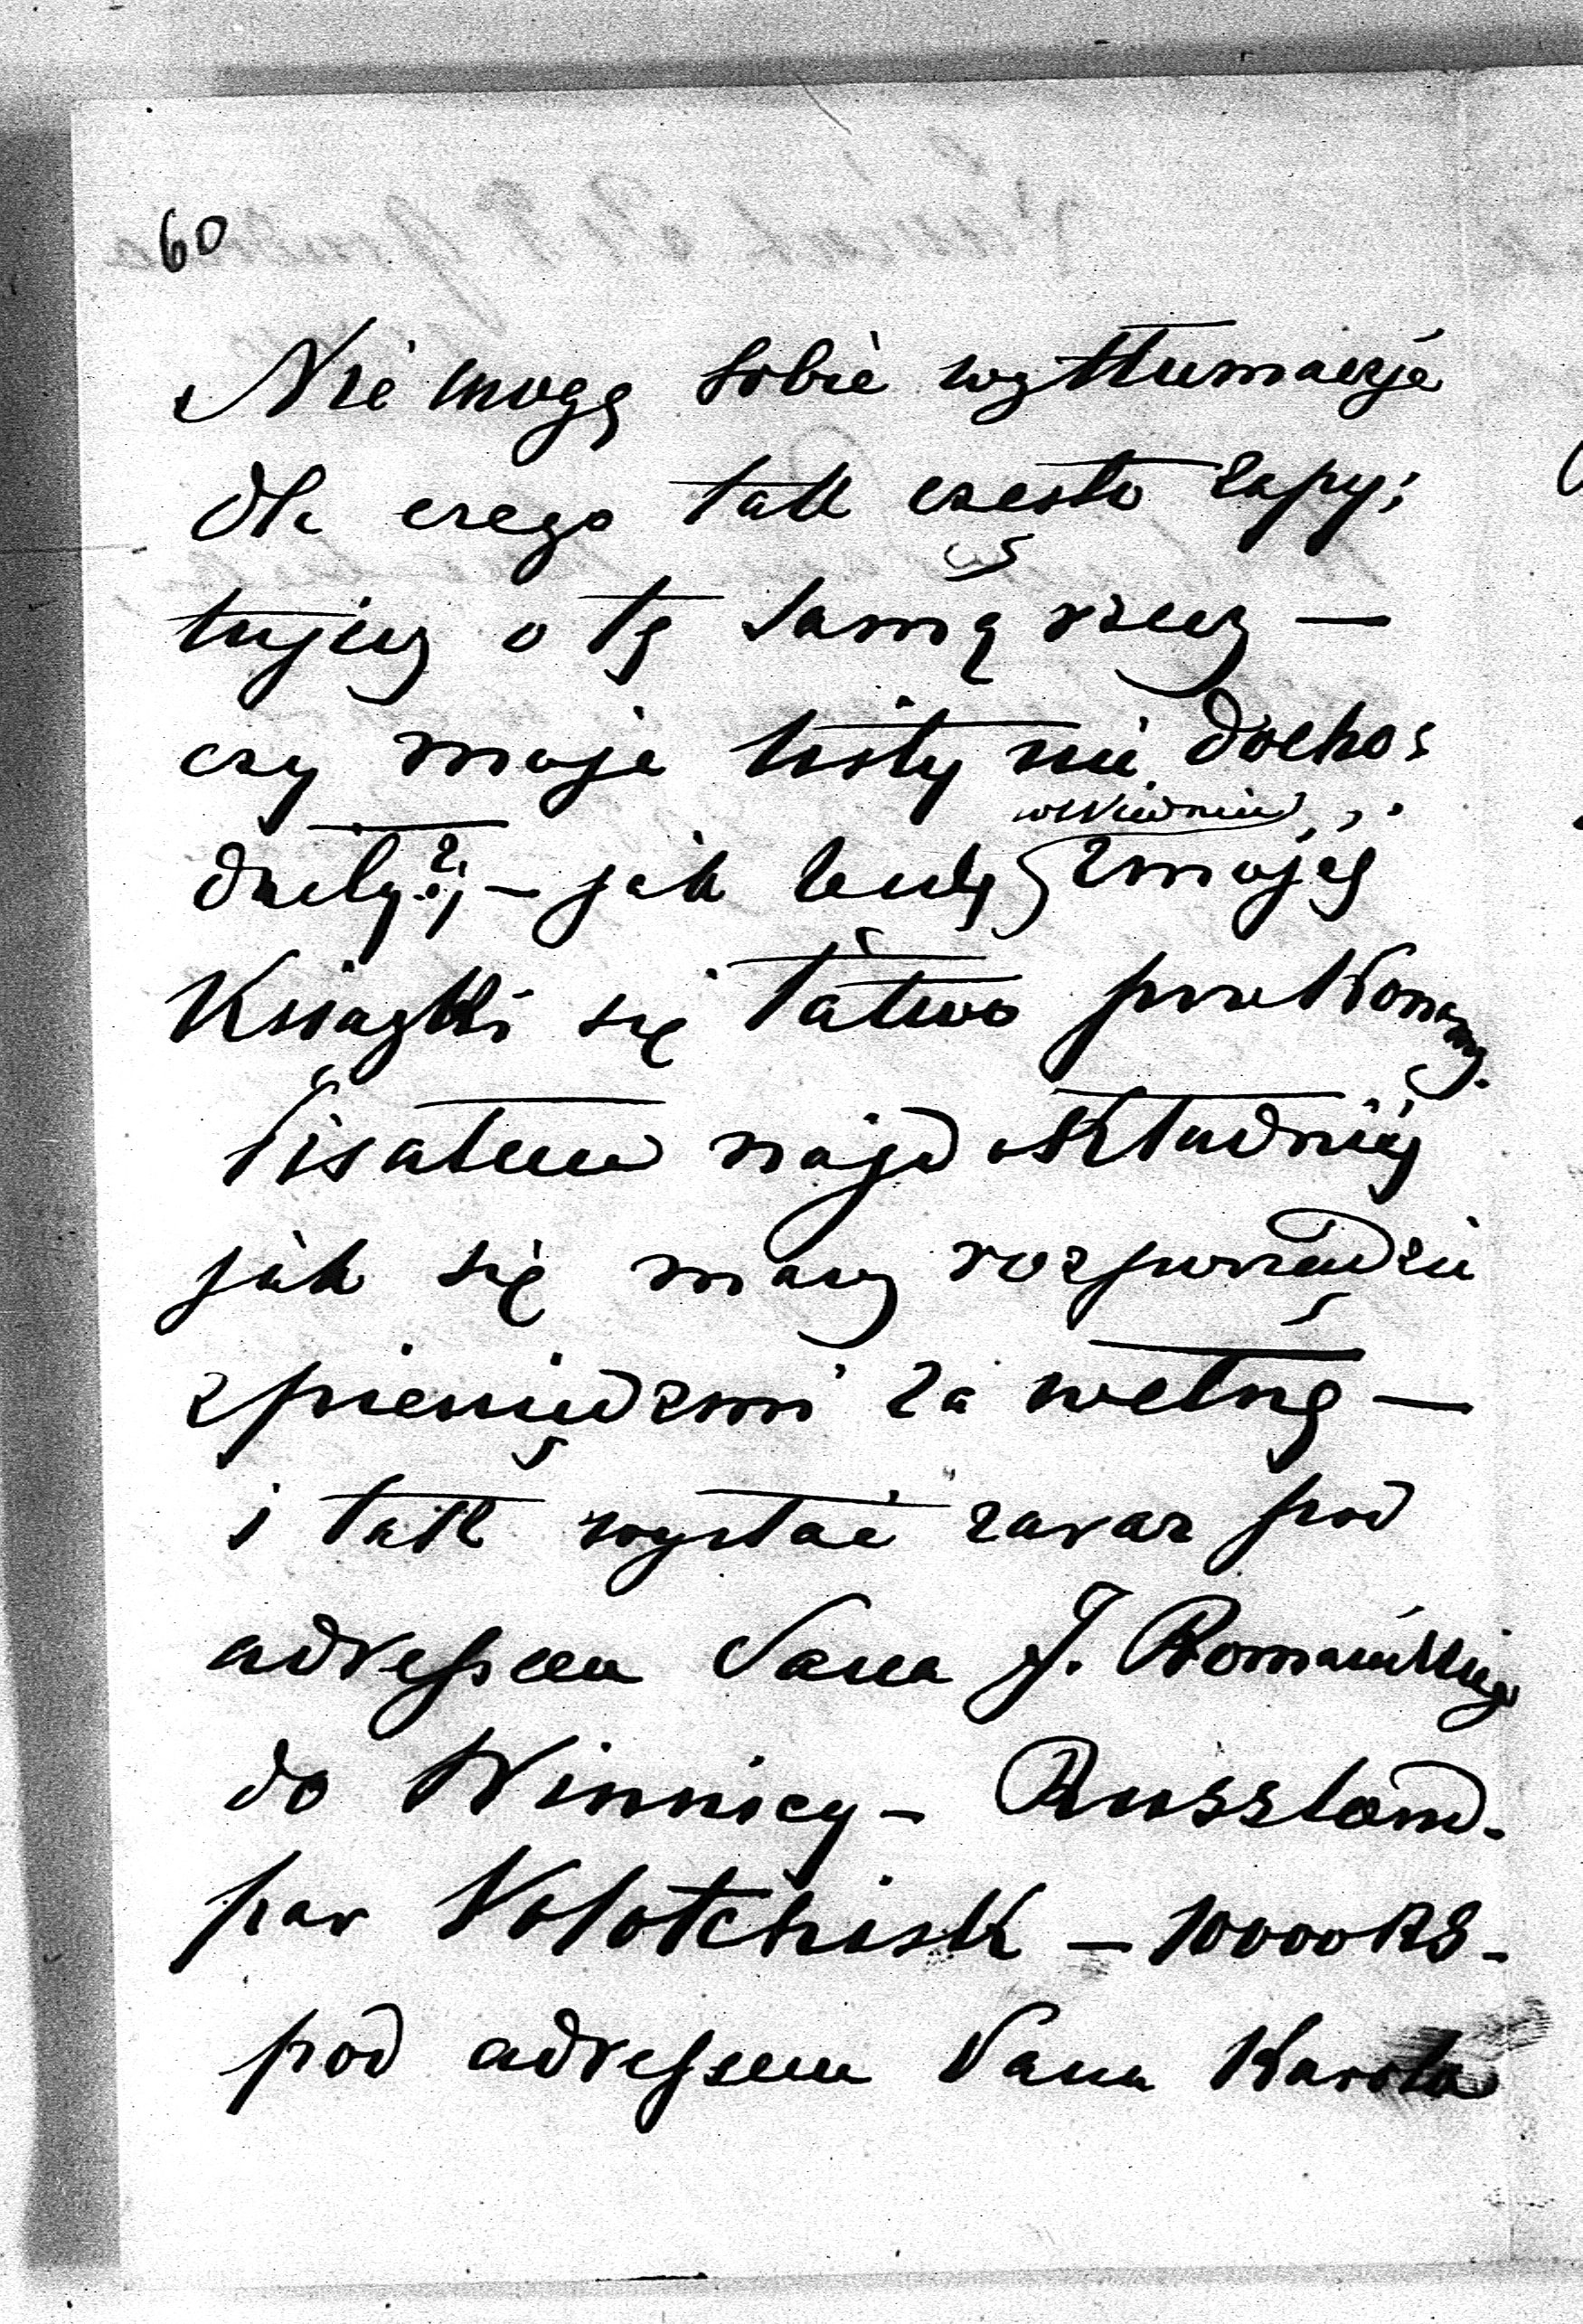 60
Nie mogę sobie wytłumaczyć
dla czego tak często zapy:
tujesz o tę samą rzecz —
czy moje listy nie docho:
dziły?; – jak będę w Wiedniu z mojéj
Książki się łatwo przekonamy.
Pisałem najdokładniéj
jak się masz rozporządzić
z pieniędzmi za wełnę —
i tak wysłać zaraz pod
adressem Pana J. Romańskiego
do Winnicy – Russland.
par Volotchisk – 10000 RS –
pod adressem Pana Karola